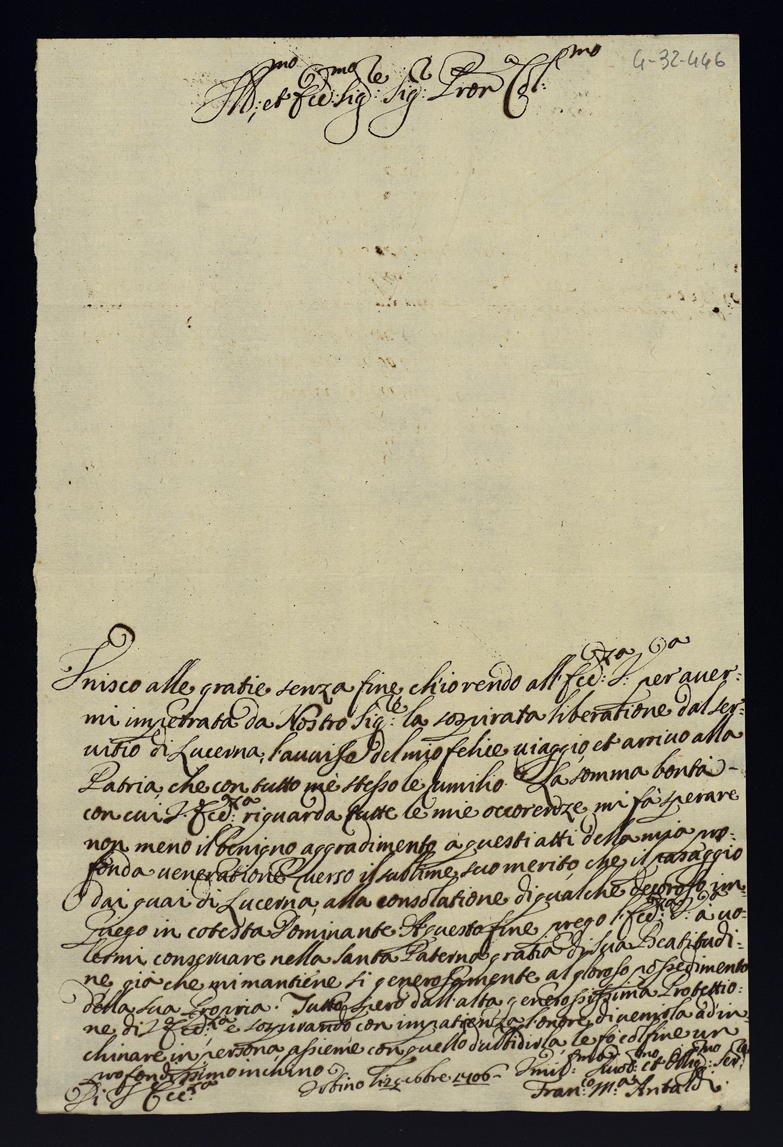 4-32-446
Ill:mo et Ecc:mo Sig:re Sig:r Pron Col:mo
Unisco alle gratie senza fine, ch'io rendo all'Ecc:za V:a per aver-
mi impetrata da Nostro Sig:re la sospirata liberatione dal ser-
uitio di Lucerna, l'auuiso del mio felice uiaggio, et arriuo alla
Patria, che con tutto me stesso le humilio. La somma bontà
con cui V. Ecc:za riguarda tutte le mie occorenze, mi fà sperare
non meno il benigno aggradimento à questi atti della mia pro-
fonda ueneratione uerso il sublime suo merito, che il passaggio
dai guai di Lucerna, alla consolatione di qualche decoroso im-
piego in cotesta Dominante. A questo fine prego l'Ecc:za V:a à uo-
lermi conseruare nella Santa Paterna gratia di sua Beatitudi-
ne, già che mi mantiene si generosamente al glorioso possedimento
della sua Propria. Tutto spero dall'alta generosissima Protettio-
ne di V. Ecc:za e sospirando con impatienza l'honore di uenirla ad in-
chinare in persona, assieme con quello d'ubbidirla, le fò col fine un
profondissimo inchino.
Di V. Ecc:za
Urbino li 8bre 1706.
Umil:mo Diuot:mo et Obblig:mo Ser:re
Fran:co M:a Antaldi